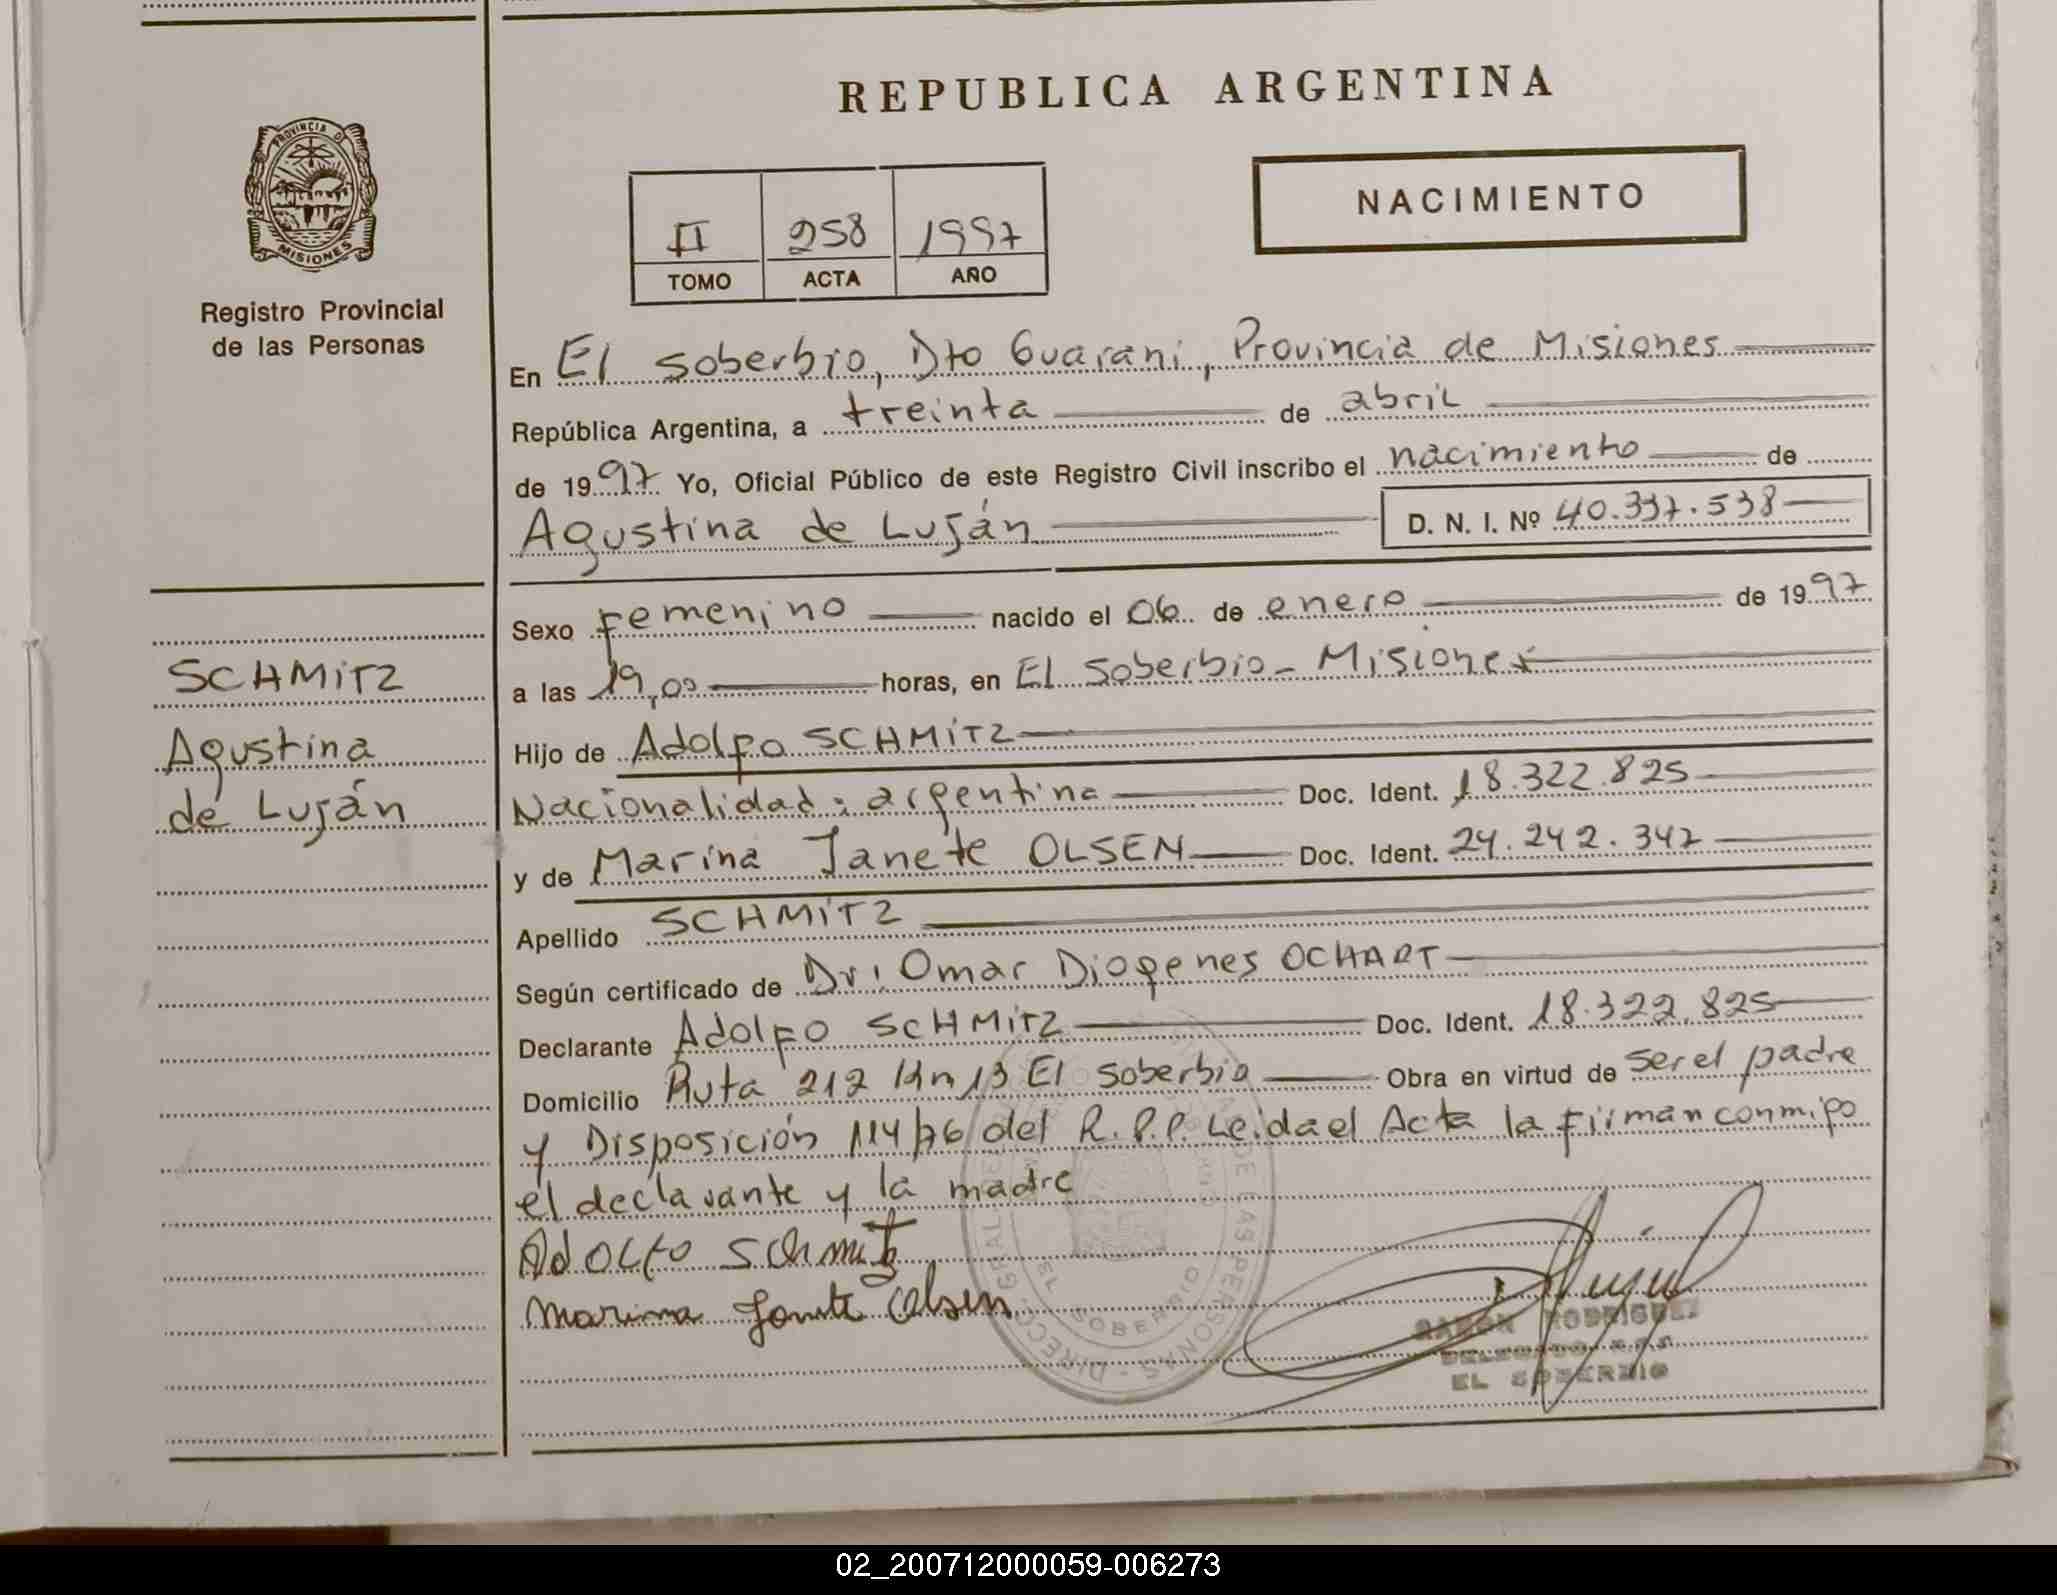 REPUBLICA ARGENTINA
PROVINCIA DE MISIONES
Registro Provincial
de las Personas
II 258 1997
TOMO ACTA AÑO
NACIMIENTO
En El Soberbio, Dto Guaraní, Provincia de Misiones
República Argentina, a treinta de abril
de 1997 Yo, Oficial Público de este Registro Civil inscribo el nacimiento de
Agustina de Luján D. N. I. Nº 40.337.538
Sexo femenino nacido el 06 de enero de 1997
a las 19,00 horas, en El Soberbio - Misiones
Hijo de Adolfo SCHMITZ
Nacionalidad: argentina Doc. Ident. 18.322.825
y de Marina Janete OLSEN Doc. Ident. 24.242.347
Apellido SCHMITZ
Según certificado de Dr. Omar Diogenes OCHART
Declarante Adolfo SCHMITZ Doc. Ident. 18.322.825
Domicilio Ruta 212 Km 13 El Soberbio Obra en virtud de ser el padre
y Disposición 114/76 del R.P.P. Leida el Acta la firman conmigo
el declarante y la madre
Adolfo Schmitz
Marina Janete Olsen
SCHMITZ
Agustina
de Luján
EL SOBERBIO
RAMON RODRIGUEZ
DELEGADO
EL SOBERBIO
02_200712000059-006273